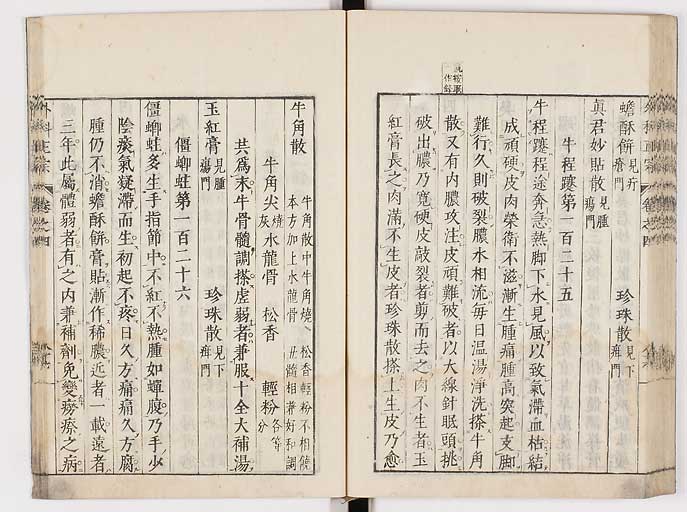 蟾酥餅見疔瘡門
真君妙貼散見腫瘍門 珍珠散見下疳門
牛程蹇第一百二十五
牛程蹇程途奔急熱脚下水見風以致氣滯血枯結
成頑硬皮肉榮衛不滋漸生腫痛腫高突起支脚
難行久則破裂膿水相流每日温湯淨洗搽牛角
散又有内膿攻注皮頑難破者以大線針眠頭挑
破出膿乃寛硬皮敲裂者剪而去之肉不生者玉
紅膏長之肉滿不生皮者珍珠散搽上生皮乃愈
牛角散
牛角散中牛角燒 松香輕粉不相饒
本方加上水龍骨 丑髓相兼好和調
牛角尖燒灰 水龍骨 松香 輕粉各等分
共為末牛骨髓調搽虚弱者兼服十全大補湯
玉紅膏見腫瘍門 珍珠散見下疳門
僵螂蛀第一百二十六
僵螂蛀多生手指節中不紅不熱腫如蟬腹乃手少
陰痰氣凝滯而生初起不疼日久方痛痛久方腐
腫仍不消蟾酥餅膏貼漸作稀膿近者一載遠者
三年此屬體弱者有之内兼補劑免變癆瘵之病
外科正宗 卷之四